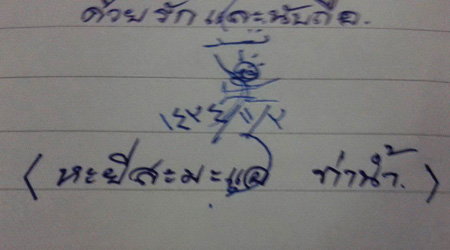 ด้วยรักและนับถือ.
(หะยีสะมะแอ ท่าน้ำ.)